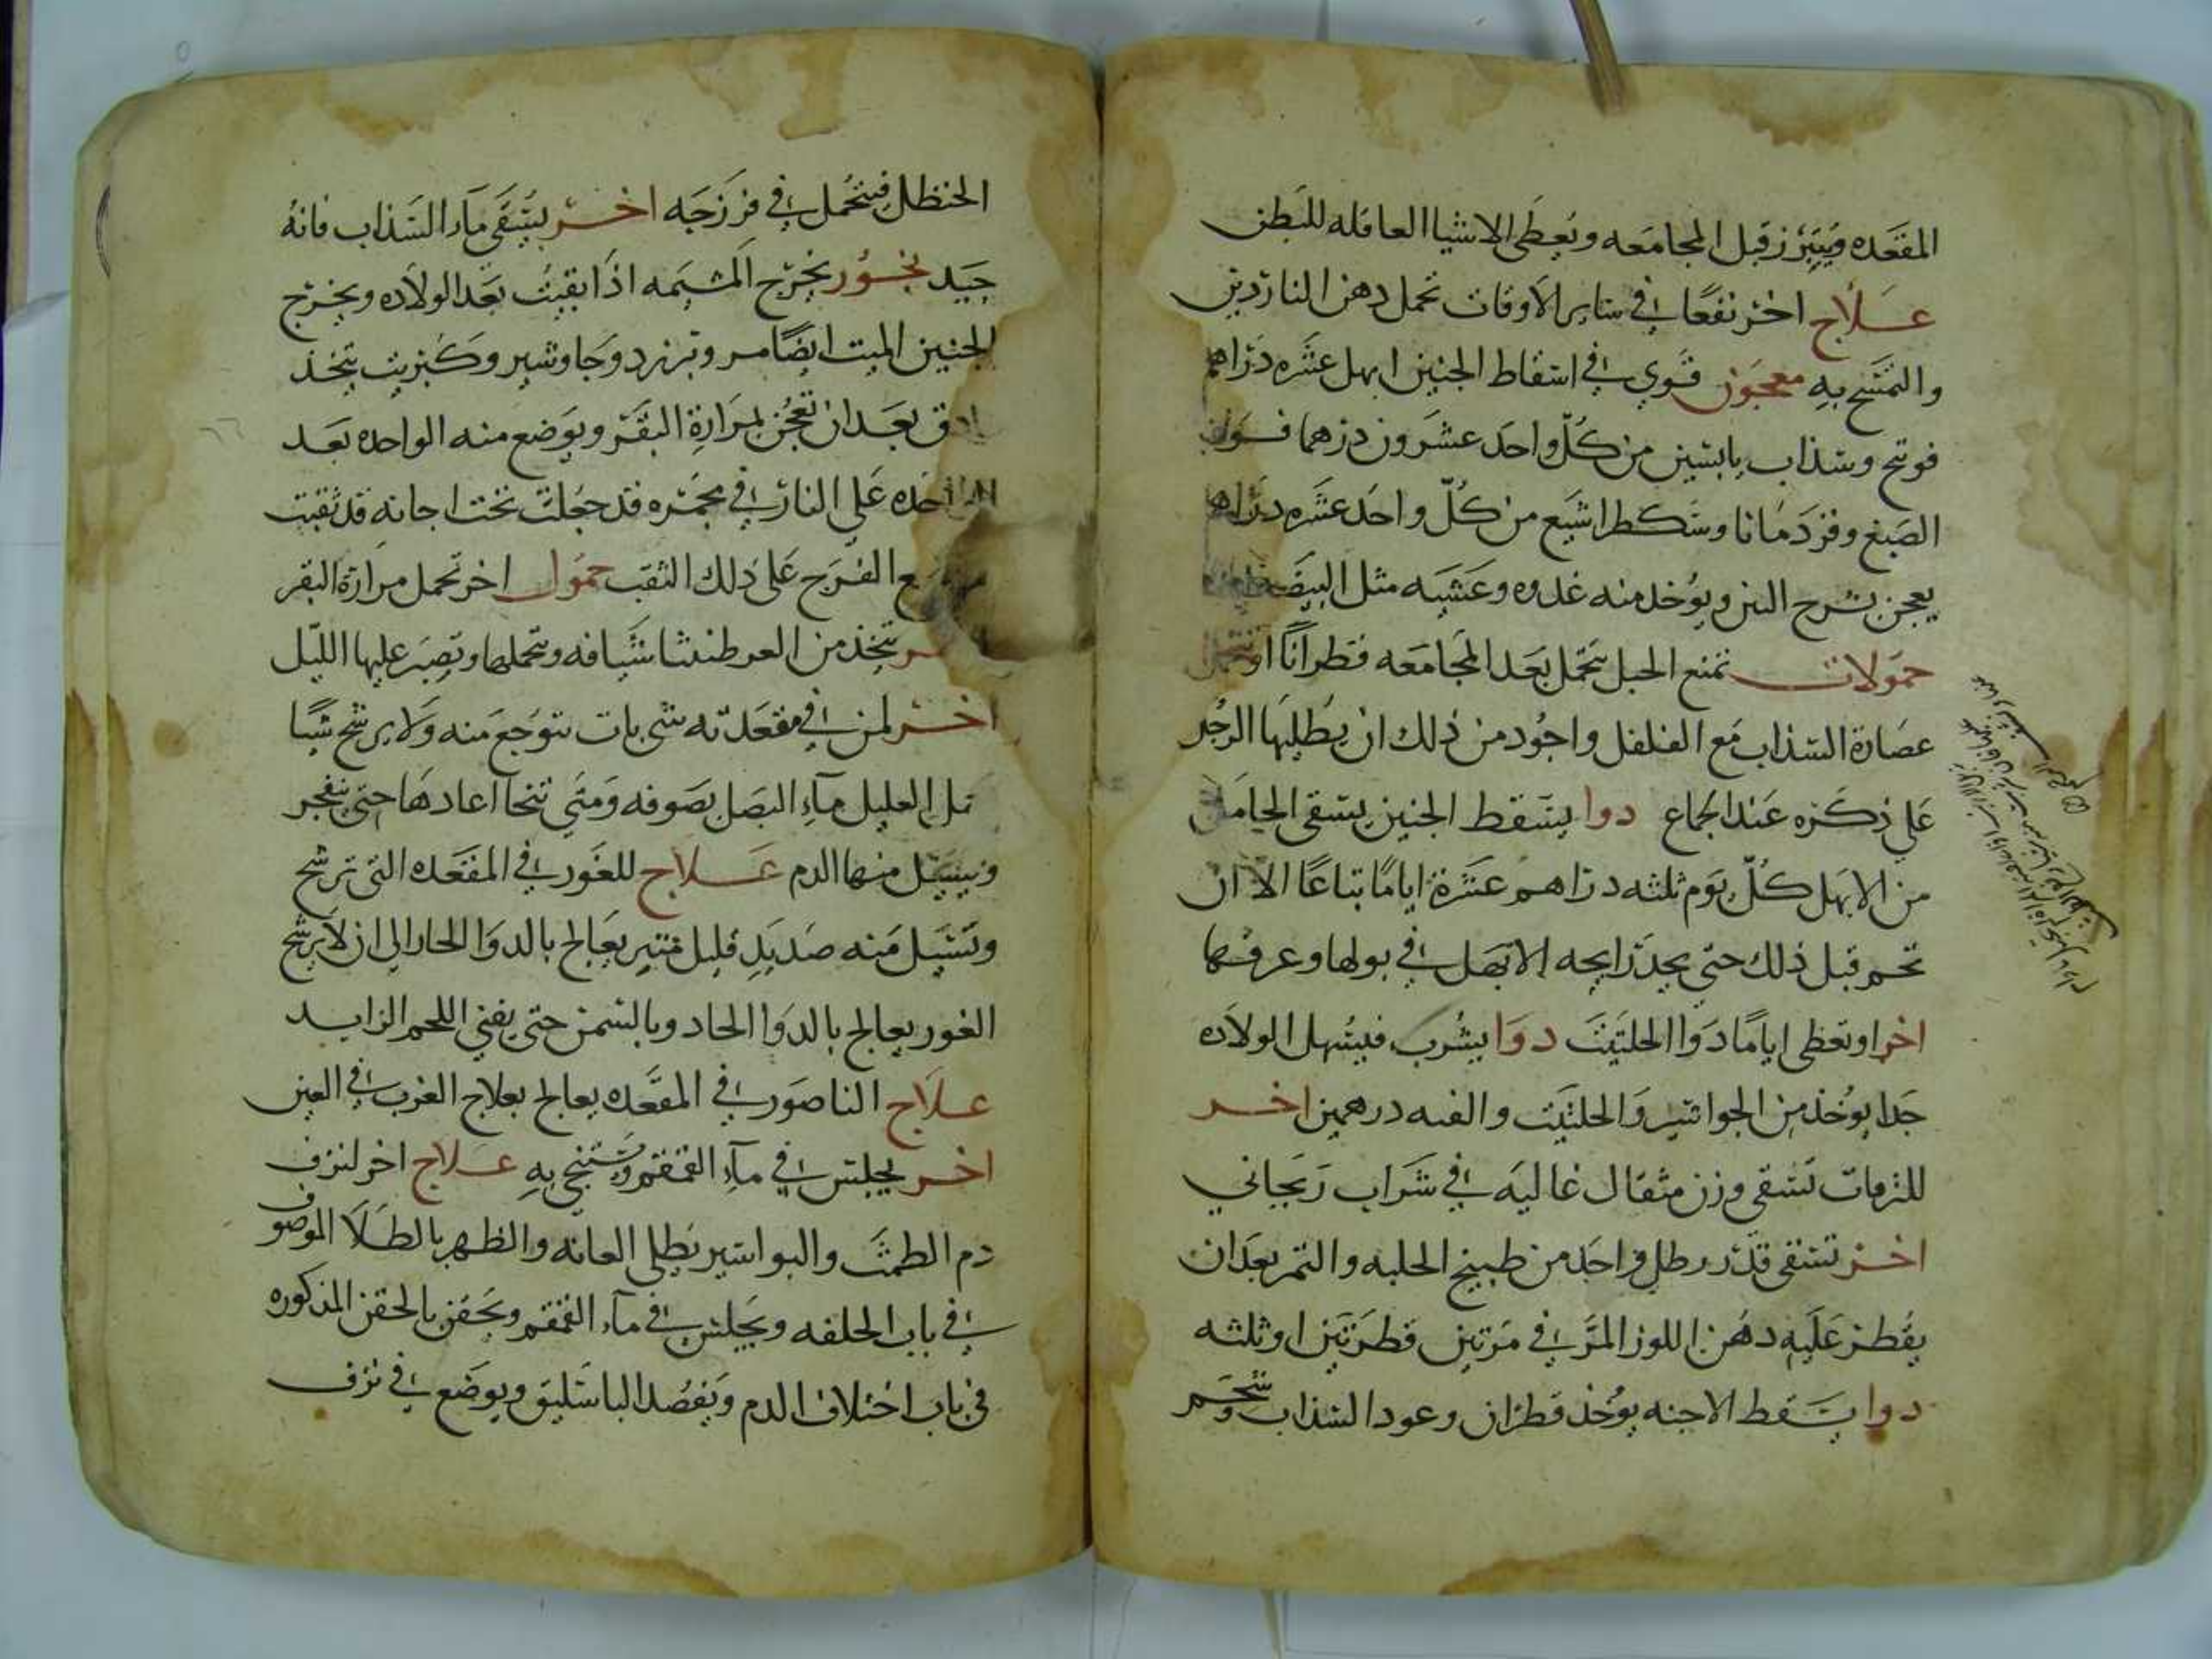 المقعده ويتبرز قبل المجامعه ويعطى الاشيا العاقله للبطن
علاج اخر نفعا في ساير الاوقات تحمل دهن الناردين
والتمسح به معجون قوي في اسقاط الجنين ابهل عشره دراهم
فوتنج وسذاب يابسين من كل واحد عشرون درهما فوة
الصبغ وقردمانا ومشكطرامشيع من كل واحد عشره دراهم
يعجن ويوخذ منه غدوه وعشيه مثل البيضه
حمولات تمنع الحبل تحمل بعد المجامعه قطرانا او تتحمل
عصارة السذاب مع الفلفل واجود من ذلك ان يطليها الرجل
على ذكره عند الجماع دوا يسقط الجنين يسقى الحامل
من الابهل كل يوم ثلثه دراهم عشرة اياما تباعا الا ان
تحم قبل ذلك حتى يجد رايحه الابهل في بولها وعرقها
اخر او تعطى اياما دوا الحلتيت دوا يشرب فيسهل الولاده
جدا يوخذ من الجواشير والحلتيت والقنه درهمين اخر
تسقى وزن مثقال غاليه في شراب ريحاني
اخر تسقى قدر رطل واحد من طبيخ الحلبه والتمر بعد ان
يقطر عليه دهن اللوز المر في مرتين قطرتين او ثلثه
دوا يسقط الاجنه يوخذ قطران وعود السذاب وشحم
الحنظل فيتحمل في فرزجه اخر يستقى ماء السذاب فانه
جيد بخور يخرج المشيمه اذا بقيت بعد الولاده ويخرج
الجنين الميت ايضا مر وبرزد وجاوشير وكبريت يتخذ
بنادق بعد ان تعجن بمرارة البقر ويوضع منه الواحده بعد
الواحده على النار في مجمره قد جعلت تحت اجانه قد ثقبت
الفرج على ذلك الثقب حمول اخر تحمل مرارة البقر
اخر تتخذ من العرطنيثا شيافه وتتحملها وتصبر عليها الليل
اخر لمن في مقعدته شي بات يتوجع منه ولا يرشح شيا
العليل ماء البصل بصوفه ومتى تنحا اعادها حتى ينفجر
ويسيل منها الدم علاج للغور في المقعده التي ترشح
وتسيل منه صديد قليل منتن يعالج بالدوا الحار الى ان لا يرشح
الغور يعالج بالدوا الحاد وبالسمن حتى يفنى اللحم الزايد
علاج الناصور في المقعده يعالج بعلاج الغرب في العين
اخر يجلس في ماء القمقم ويستنجي به علاج اخر لنزف
دم الطمث والبواسير يطلى العانه والظهر بالطلا الموصوف
في باب الحلفه ويجلس في ماء القمقم ويحقن بالحقن المذكوره
في باب اختلاف الدم ويفصد الباسليق ويوضع في نزف